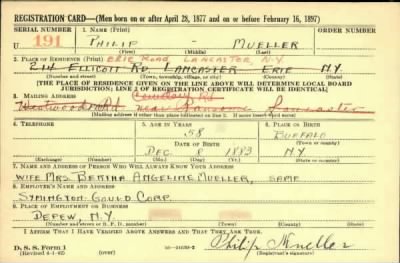 REGISTRATION CARD—(Men born on or after April 28, 1877 and on or before February 16, 1897)
SERIAL NUMBER 1. NAME (Print) ORDER NUMBER
U 191 PHILIP — MUELLER
(First) (Middle) (Last)
2. PLACE OF RESIDENCE (Print) ERIE ROAD LANCASTER N.Y.
214 ELLICOTT RD. LANCASTER ERIE N.Y.
(Number and street) (Town, township, village, or city) (County) (State)
[THE PLACE OF RESIDENCE GIVEN ON THE LINE ABOVE WILL DETERMINE LOCAL BOARD
JURISDICTION; LINE 2 OF REGISTRATION CERTIFICATE WILL BE IDENTICAL]
3. MAILING ADDRESS
near Lancaster
[Mailing address if other than place indicated on line 2. If same insert word same]
4. TELEPHONE 5. AGE IN YEARS 6. PLACE OF BIRTH
58 BUFFALO
DATE OF BIRTH (Town or county)
DEC 8 1883 N.Y.
(Exchange) (Number) (Mo.) (Day) (Yr.) (State or country)
7. NAME AND ADDRESS OF PERSON WHO WILL ALWAYS KNOW YOUR ADDRESS
WIFE MRS. BERTHA ANGELINE MUELLER, SAME
8. EMPLOYER'S NAME AND ADDRESS
SYMINGTON GOULD CORP.
9. PLACE OF EMPLOYMENT OR BUSINESS
DEPEW, N.Y.
(Number and street or R. F. D. number) (Town) (County) (State)
I AFFIRM THAT I HAVE VERIFIED ABOVE ANSWERS AND THAT THEY ARE TRUE.
D. S. S. Form 1
(Revised 4-1-42) (over) Philip Mueller
(Registrant's signature)